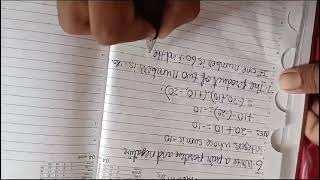 6. Write a pair positive and negative
integers whose sum is -10
Ans -20 + 10 = -10
(-20) = -10
= (-20,+10), (+10,-20)
7. The product of two numbers is
If one number is 60 Find the